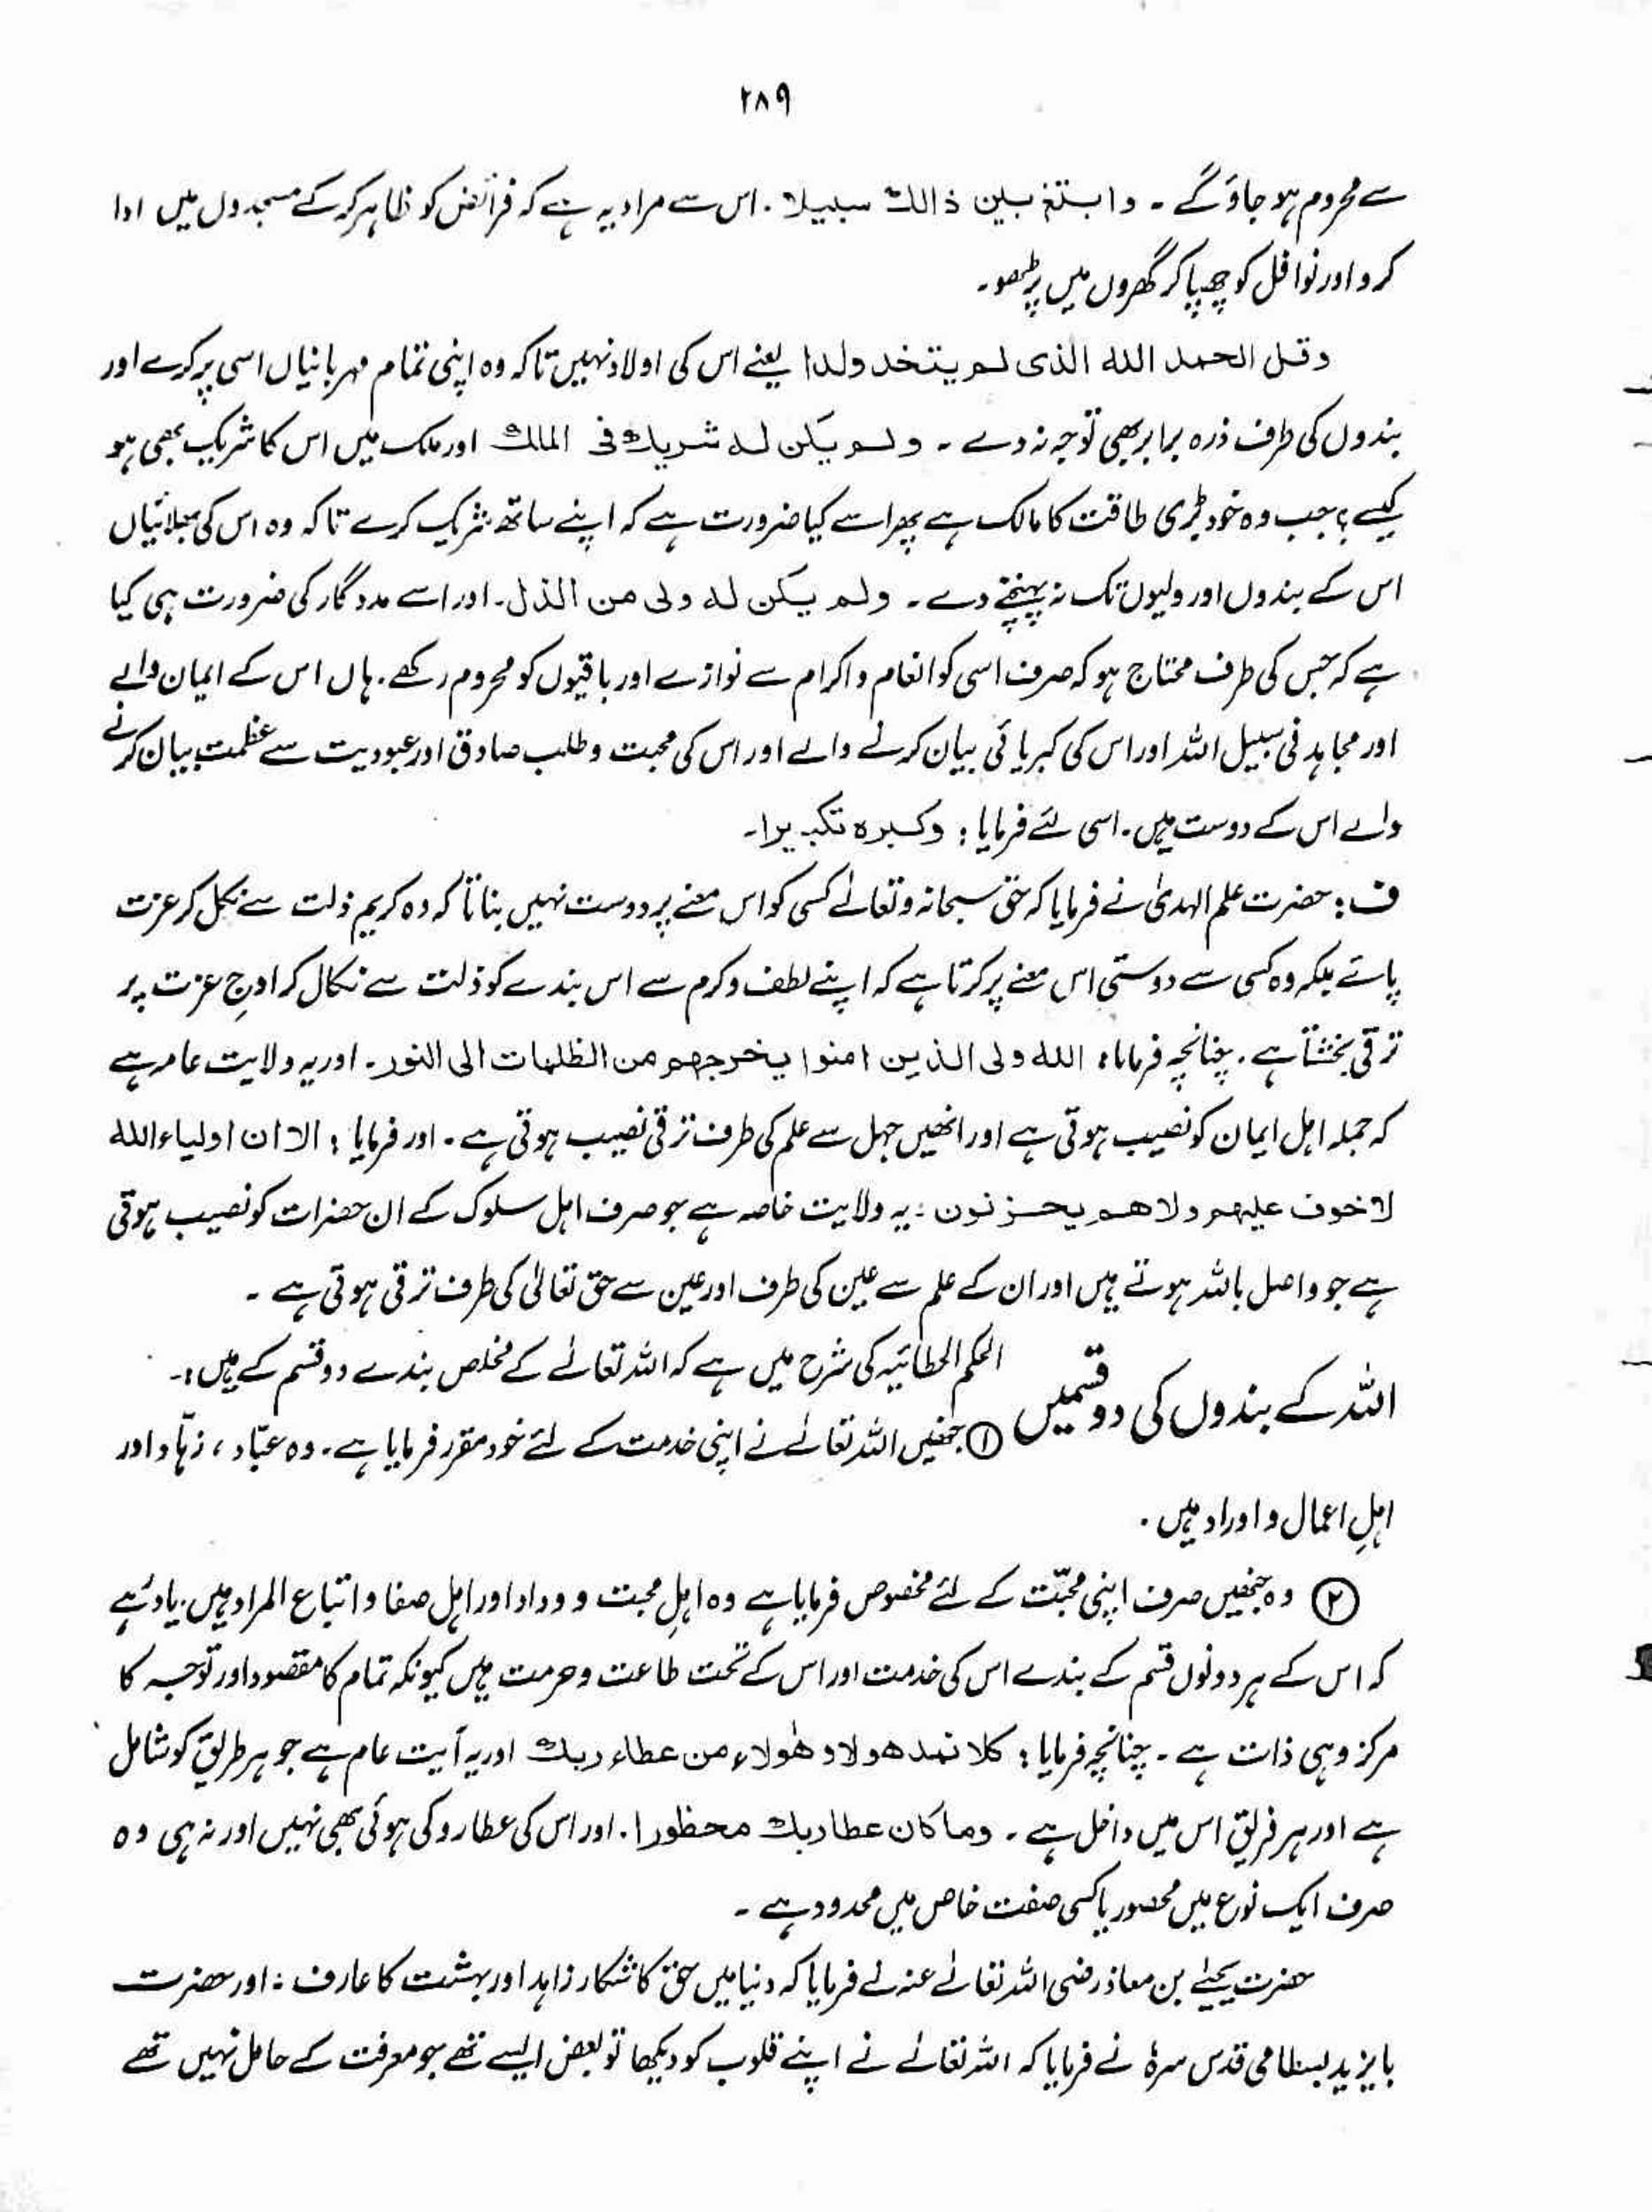 ۲۸۹
سے محروم ہو جاؤ گے ۔ وابتغ بین ذالك سبیلا ۔ اس سے مراد یہ ہے کہ فرائض کو ظاہر کر کے مسجدوں میں ادا
کرو اور نوافل کو چھپا کر گھروں میں پڑھو۔
وقل الحمد الله الذی لم یتخد ولدا یعنے اس کی اولاد نہیں تاکہ وہ اپنی تمام مہربانیاں اسی پر کرے اور
بندوں کی طرف ذرہ برابر بھی توجہ نہ دے ۔ ولم یکن له شریك فی الملك اور ملک میں اس کا شریک بھی ہو
کیسے ؟ جب وہ خود بڑی طاقت کا مالک ہے پھر اسے کیا ضرورت ہے کہ اپنے ساتھ شریک کرے تاکہ وہ اس کی بھلائیاں
اس کے بندوں اور ولیوں تک نہ پہنچنے دے ۔ ولم یکن له ولی من الذل۔ اور اسے مددگار کی ضرورت ہی کیا
ہے کہ جس کی طرف محتاج ہو کہ صرف اسی کو انعام و اکرام سے نوازے اور باقیوں کو محروم رکھے ۔ ہاں اس کے ایمان والے
اور مجاہد فی سبیل اللہ اور اس کی کبریائی بیان کرنے والے اور اس کی محبت و طلب صادق اور عبودیت سے عظمت بیان کرنے
والے اس کے دوست ہیں ۔ اسی لئے فرمایا : وكبره تكبيرا۔
ف : حضرت علم الہدیٰ نے فرمایا کہ حق سبحانہ وتعالےٰ کسی کو اس معنے پر دوست نہیں بناتا کہ وہ کریم ذلت سے نکل کر عزت
پائے بلکہ وہ کسی سے دوستی اس معنے پر کرتا ہے کہ اپنے لطف و کرم سے اس بندے کو ذلت سے نکال کر اوجِ عزت پر
ترقی بخشتا ہے ۔ چنانچہ فرمایا : الله ولی الذین امنوا یخرجهم من الظلمات الی النور ۔ اور یہ ولایت عامہ ہے
کہ جملہ اہل ایمان کو نصیب ہوتی ہے اور انھیں جہل سے علم کی طرف ترقی نصیب ہوتی ہے ۔ اور فرمایا : الا ان اولیاء الله
لا خوف علیهم ولا هم یحزنون : یہ ولایت خاصہ ہے جو صرف اہل سلوک کے ان حضرات کو نصیب ہوتی
ہے جو واصل باللہ ہوتے ہیں اور ان کے علم سے عین کی طرف اور عین سے حق تعالیٰ کی طرف ترقی ہوتی ہے ۔
اللہ کے بندوں کی دو قسمیں
الحکم العطائیہ کی شرح میں ہے کہ اللہ تعالےٰ کے مخلص بندے دو قسم کے ہیں :۔
① جنھیں اللہ تعالےٰ نے اپنی خدمت کے لئے خود مقرر فرمایا ہے ۔ وہ عبّاد ، زہّاد اور
اہلِ اعمال و اوراد ہیں ۔
② وہ جنھیں صرف اپنی محبّت کے لئے مخصوص فرمایا ہے وہ اہلِ محبت و وداد اور اہل صفا و اتباع المراد ہیں ۔ یاد رہے
کہ اس کے ہر دونوں قسم کے بندے اس کی خدمت اور اس کے تحت طاعت و حرمت ہیں کیونکہ تمام کا مقصود اور توجہ کا
مرکز وہی ذات ہے ۔ چنانچہ فرمایا : کلا نمد هولاد هٰولاء من عطاء ربك اور یہ آیت عام ہے جو ہر طریق کو شامل
ہے اور ہر فریق اس میں داخل ہے ۔ وما کان عطا ربك محظورا ۔ اور اس کی عطا روکی ہوئی بھی نہیں اور نہ ہی وہ
صرف ایک نوع میں محصور یا کسی صفت خاص میں محدود ہے ۔
حضرت یحیےٰ بن معاذ رضی اللہ تعالےٰ عنہ نے فرمایا کہ دنیا میں حق کا شکار زاہد اور بہشت کا عارف : اور حضرت
بایزید بسطامی قدس سرہٗ نے فرمایا کہ اللہ تعالےٰ نے اپنے قلوب کو دیکھا تو بعض ایسے تھے جو معرفت کے حامل نہیں تھے